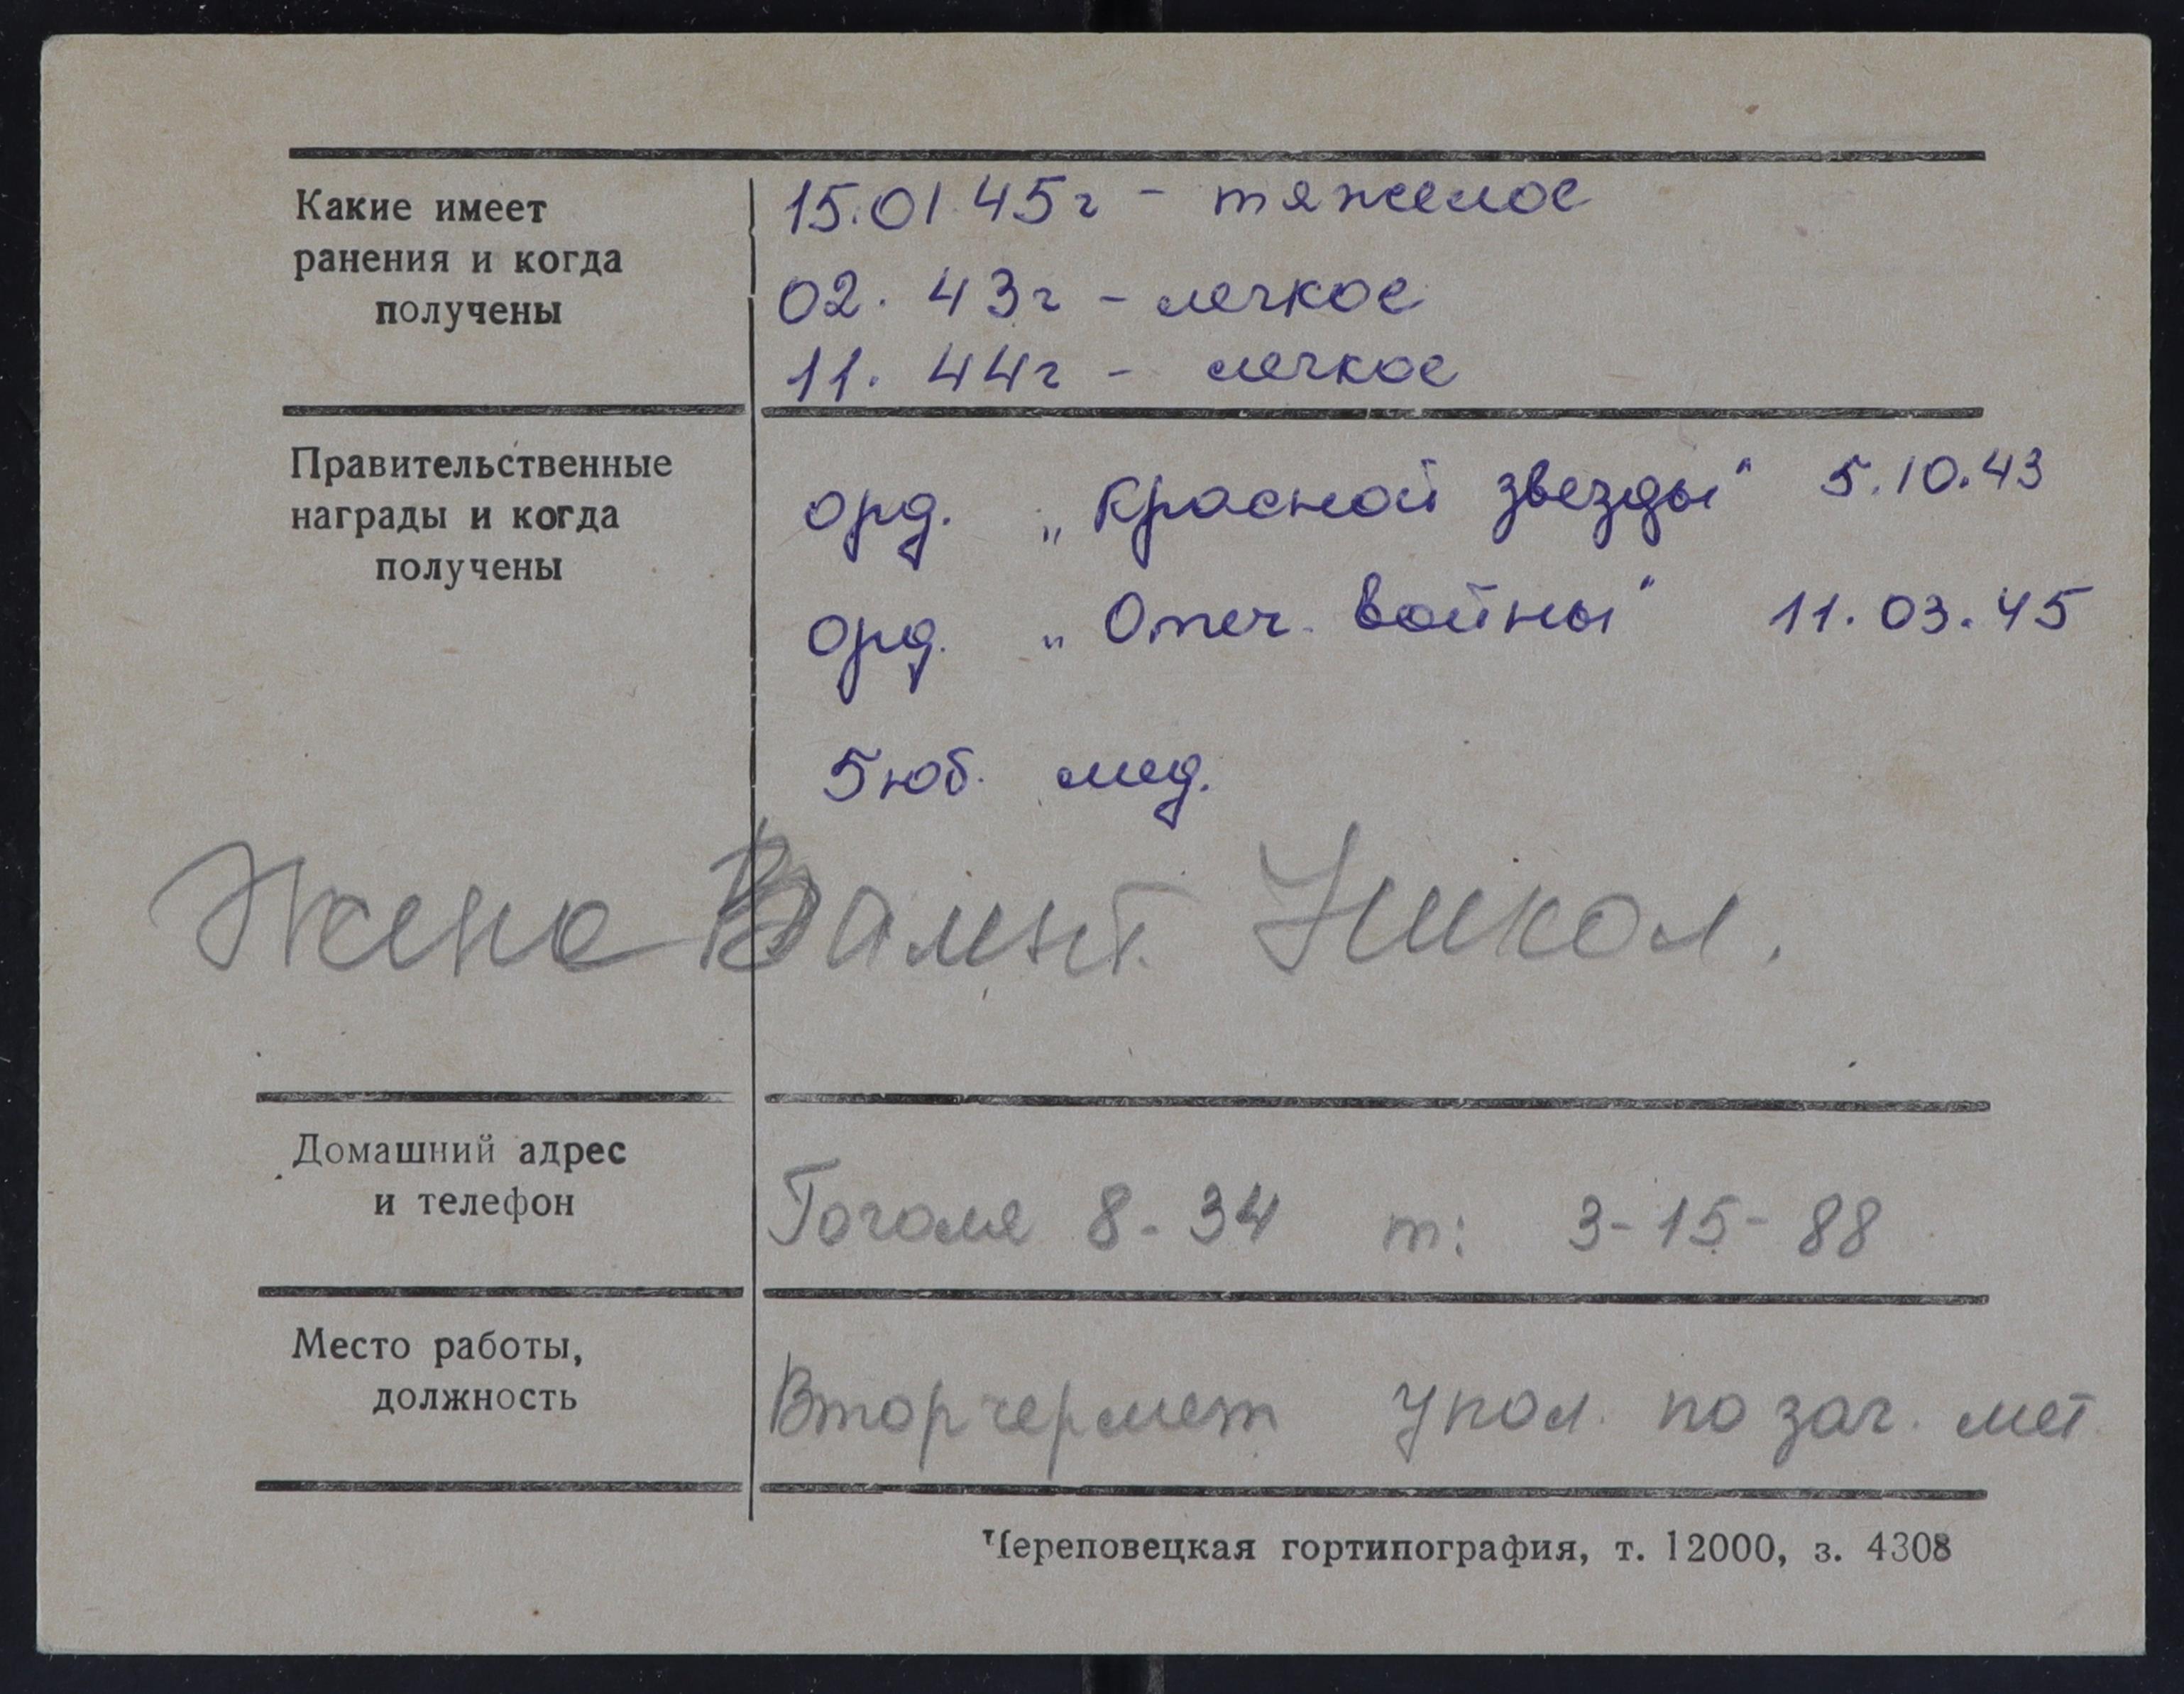 Какие имеет
ранения и когда
получены
15.01.45г - тяжелое
02. 43г - легкое
11. 44г - легкое
Правительственные
награды и когда
получены
орд. „Красной звезды" 5.10.43
орд. „Отеч. войны" 11.03.45
5 юб. мед.
Жена Валент. Никол.
Домашний адрес
и телефон
Гоголя 8-34 т: 3-15-88
Место работы,
должность
Вторчермет упол. по заг. мет
Череповецкая гортипография, т. 12000, з. 4308